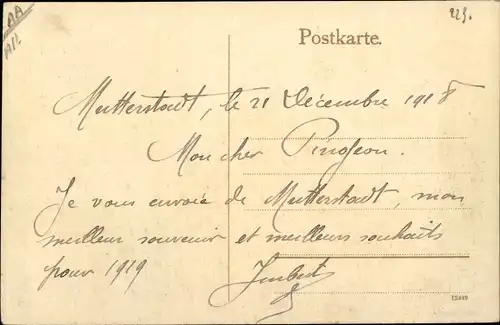 AA
223.
Postkarte.
Mutterstadt, le 21 Décembre 1918
Mon cher Pinogeon.
Je vous envoie de Mutterstadt, mon
meilleur souvenir et meilleurs souhaits
pour 1919